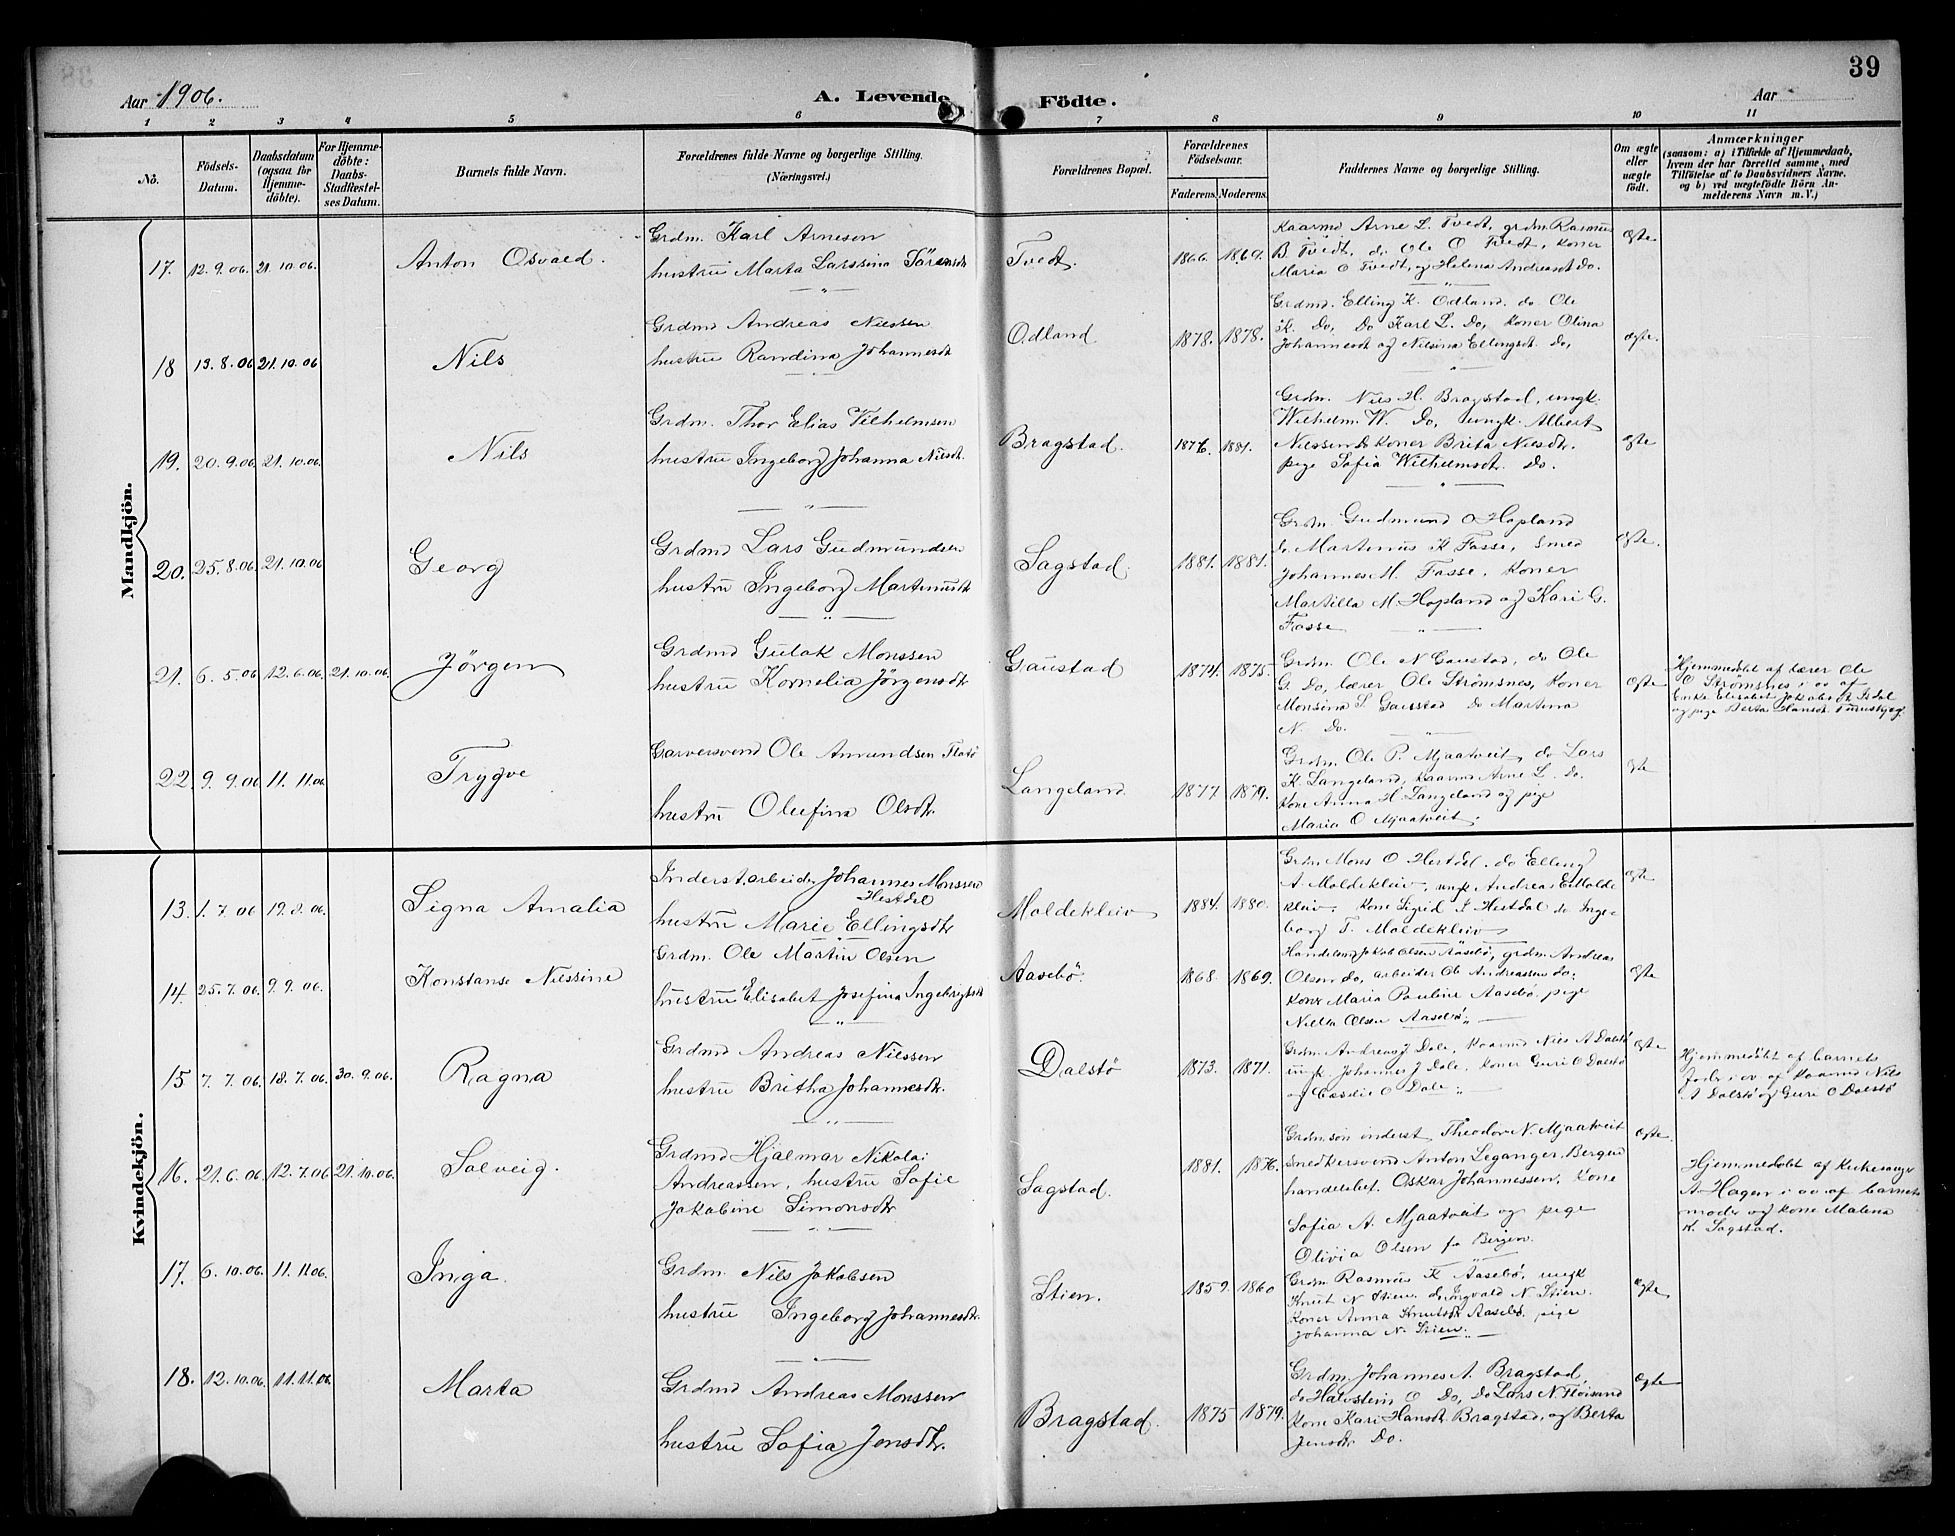 39
Aar 1906.
A. Levende Födte.
Aar
1 2 3 4 5 6 7 8 9 10 11
No.
Födsels-Datum.
Daabsdatum (ogsaa for Hjemme-döbte).
For Hjemme-döbte: Daabs-Stadfæstel-ses Datum.
Barnets fulde Navn.
Forældrenes fulde Navne og borgerlige Stilling. (Næringsvei.)
Forældrenes Bopæl.
Forældrenes Födselsaar.
Faderens. Moderens.
Faddernes Navne og borgerlige Stilling.
Om ægte eller uægte födt.
Anmærkninger
(saasom: a) i Tilfælde af Hjemmedaab,
hvem der har forrettet samme, med
Tilföielse af to Daabsvidners Navne,
og b) ved uægtefödte Börn An-
melderens Navn m. V.)
Mandkjön.
17. 12.9.06 21.10.06. Anton Osvald.
Grdm. Karl Arneson
hustru Marta Larssina Sörensdt
Tvedt. 1866. 1869.
Kaarmd Arne L. Tvedt, grdm Rasmus
B. Tvedt, do Ole O Tvedt, koner
Maria O Tvedt, og Helena Andreasdt Do.
Ægte
18 13.8.06 21.10.06 Nils
Grdmd Andreas Nilssen
hustru Randina Johannesdt
Odland 1878. 1878.
Grdmd. Elling K. Odland. do Ole
K. Do, Do Karl L. Do, koner Olina
Johannesdt og Nilsina Ellingsdt. Do,
ægte.
19. 20.9.06 21.10.06. Nils
Grdm. Thor Elias Vilhelmsen
hustru Ingeborg Johanna Nilsdt.
Bragstad. 1876. 1881.
Grdm. Nils H. Bragstad, ungk.
Wilhelm W. Do, ungk. Albert
Nilssen do koner Brita Nilsdtr.
pige Sofia Wilhelmsdt. Do.
ægte
20. 25.8.06 21.10.06 Georg
Grdmd Lars Gudmundsen
hustru Ingeborg Martinusdt
Sagstad. 1881. 1881.
Grdm. Gudmund O Hopland
do Martinus K Fosse, smed
Johannes M. Fosse, koner
Martilla M Hopland og Kari G.
Fosse
Ægte.
21. 6.5.06 12.6.06 21.10.06 Jörgen
Grdmd Gulak Monssen
hustru Kornelia Jörgensdt
Gaustad 1874. 1875.
Grdm. Ole N Gaustad, do Ole
G. Do, lærer Ole Strömsnes, koner
Monsina S. Gaustad do Martina
N. Do.
Ægte
Hjemmedöbt af lærer Ole
O Strömsnes i ov af
Enke Elisabet Jakobsdt Isdal
og pige Berta Hansdt.
22. 9.9.06 11.11.06 Trygve
Garversvend Ole Amundsen Flatö
hustru Olufina Olsdtr.
Langeland. 1877. 1879.
Grdm. Ole P. Mjaatveit, do Lars
K. Langeland, kaarmd Arne L. do.
kone Anna H. Langeland og pige
Maria O Mjaatveit.
Ægte
Kvindekjön.
13. 1.7.06 19.8.06. Signa Amalia
Inderst, arbeider Johannes Monssen
Hestdal
hustru Marie Ellingsdtr
Moldekleiv 1884. 1880.
Grdm Mons O Hestdal. do Elling
A. Moldekleiv, ungk Andreas E Molde
kleiv. kone Sigrid J. Hestdal do Inge-
borg T. Moldekleiv
ægte
14. 25.7.06 9.9.06. Konstanse Nilssine
Grdm. Ole Martin Olsen
hustru Elisabet Josefina Ingebrigtsdt
Aasebö. 1868. 1869.
Handelsmd Jakob Olsen Aasebö, grdm Andreas
Olsen do, arbeider Ole Andreassen do.
Kone Maria Pauline Aasebö. pige
Nilla Olsen Aasebö.
Ægte
15 7.7.06 18.7.06. 30.9.06. Ragna
Grdmd Andreas Nilssen
hustru Britha Johannesdtr.
Dalstö 1873. 1871.
Grdm Andreas J Dale, kaarmd Nils A Dalstö
ungk. Johannes J Dale, koner Guri O Dalstö
og O Dale.
Ægte
Hjemmedöbt af barnets
fader i ov af kaarmd Nils
A Dalstö og Guri O Dalstö
16. 21.6.06 12.7.06 21.10.06. Solveig.
Grdmd Hjalmar Nikolai
Andreassen, hustru Sofie
Jakobine Simonsdtr
Sagstad. 1881. 1876.
Grdmsön inderst Theodor N. Mjaatveit
Snedkersvend Anton Leganger. Bergen
handelsbet. Oskar Johannessen. kone
Sofia A. Mjaatveit og pige
Olivia Olsen fra Bergen.
Ægte
Hjemmedöbt af kirkesanger
A. Hagen i ov af barnets
moder og kone Malena
K. Sagstad.
17. 6.10.06. 11.11.06. Inga.
Grdm. Nils Jakobsen
hustru Ingeborg Johannesdtr.
Stien. 1859. 1860
Grdm Rasmus K Aasebö, ungk
Knut N Stien. do Ingvald N Stien.
Koner Anna Knutsdt Aasebö. pige
Johanna N. Stien.
Ægte
18. 12.10.06. 11.11.06 Marta
Grdmd Andreas Monssen
hustru Sofia Jonsdtr.
Bragstad. 1875 1879.
Grdm Johannes A. Bragstad,
do Halvstein O Do, Do Lars N Flöisand
kone Kari Hansdt Bragstad, og Berta
Jensdt. Do.
Ægte